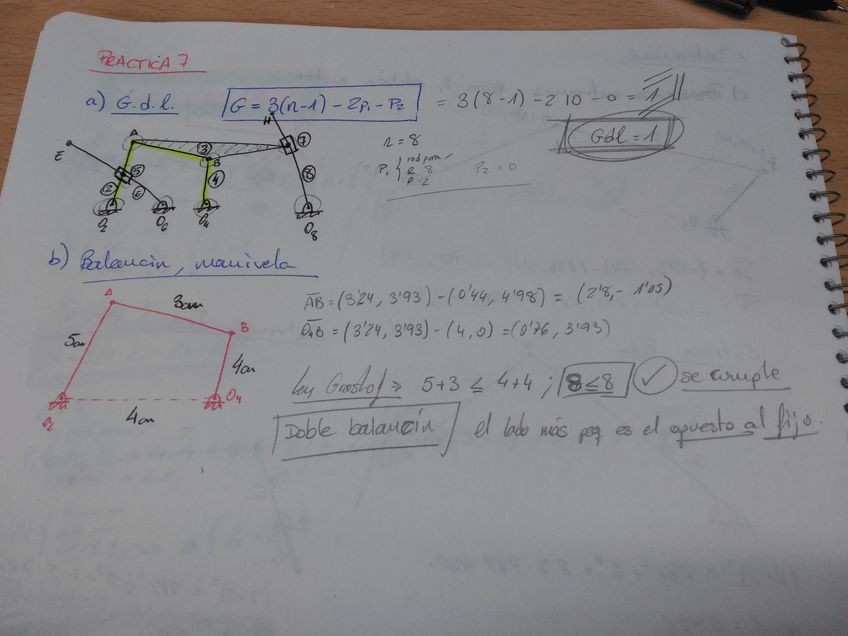 PRACTICA 7
a) G.d.l. G = 3(n-1) - 2P₁ - P₂ = 3(8-1) - 2·10 - 0 = 1
Gdl = 1
n = 8
P₁ { R 8 P 2
P₂ = 0
H
A
E
3
7
B
5
4
2
6
8
O₂
O₆
O₄
O₈
b) Balancin, manivela
A
3cm
5cm
B
4cm
O₂
O₄
4cm
AB = (3'24, 3'93) - (0'44, 4'98) = (2'8, - 1'05)
O₄B = (3'24, 3'93) - (4,0) = (0'76, 3'93)
Ley Grashof ⇒ 5+3 ≤ 4+4 ; 8 ≤ 8 ✓ se cumple
Doble balancín el lado más peq es el opuesto al fijo.